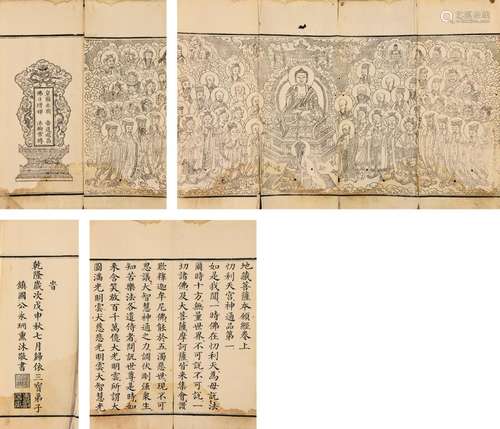 皇圖永固
帝道遐昌
佛日增輝
法輪常轉
旹
乾隆歲次戊申秋七月歸依三寶弟子
鎮國公永珊熏沐敬書
地藏菩薩本願經卷上
忉利天宮神通品第一
如是我聞一時佛在忉利天為母說法
爾時十方無量世界不可說不可說一
切諸佛及大菩薩摩訶薩皆來集會讚
歎釋迦牟尼佛能於五濁惡世現不可
思議大智慧神通之力調伏剛彊衆生
知苦樂法各遣侍者問訊世尊是時如
來含笑放百千萬億大光明雲所謂大
圓滿光明雲大慈悲光明雲大智慧光